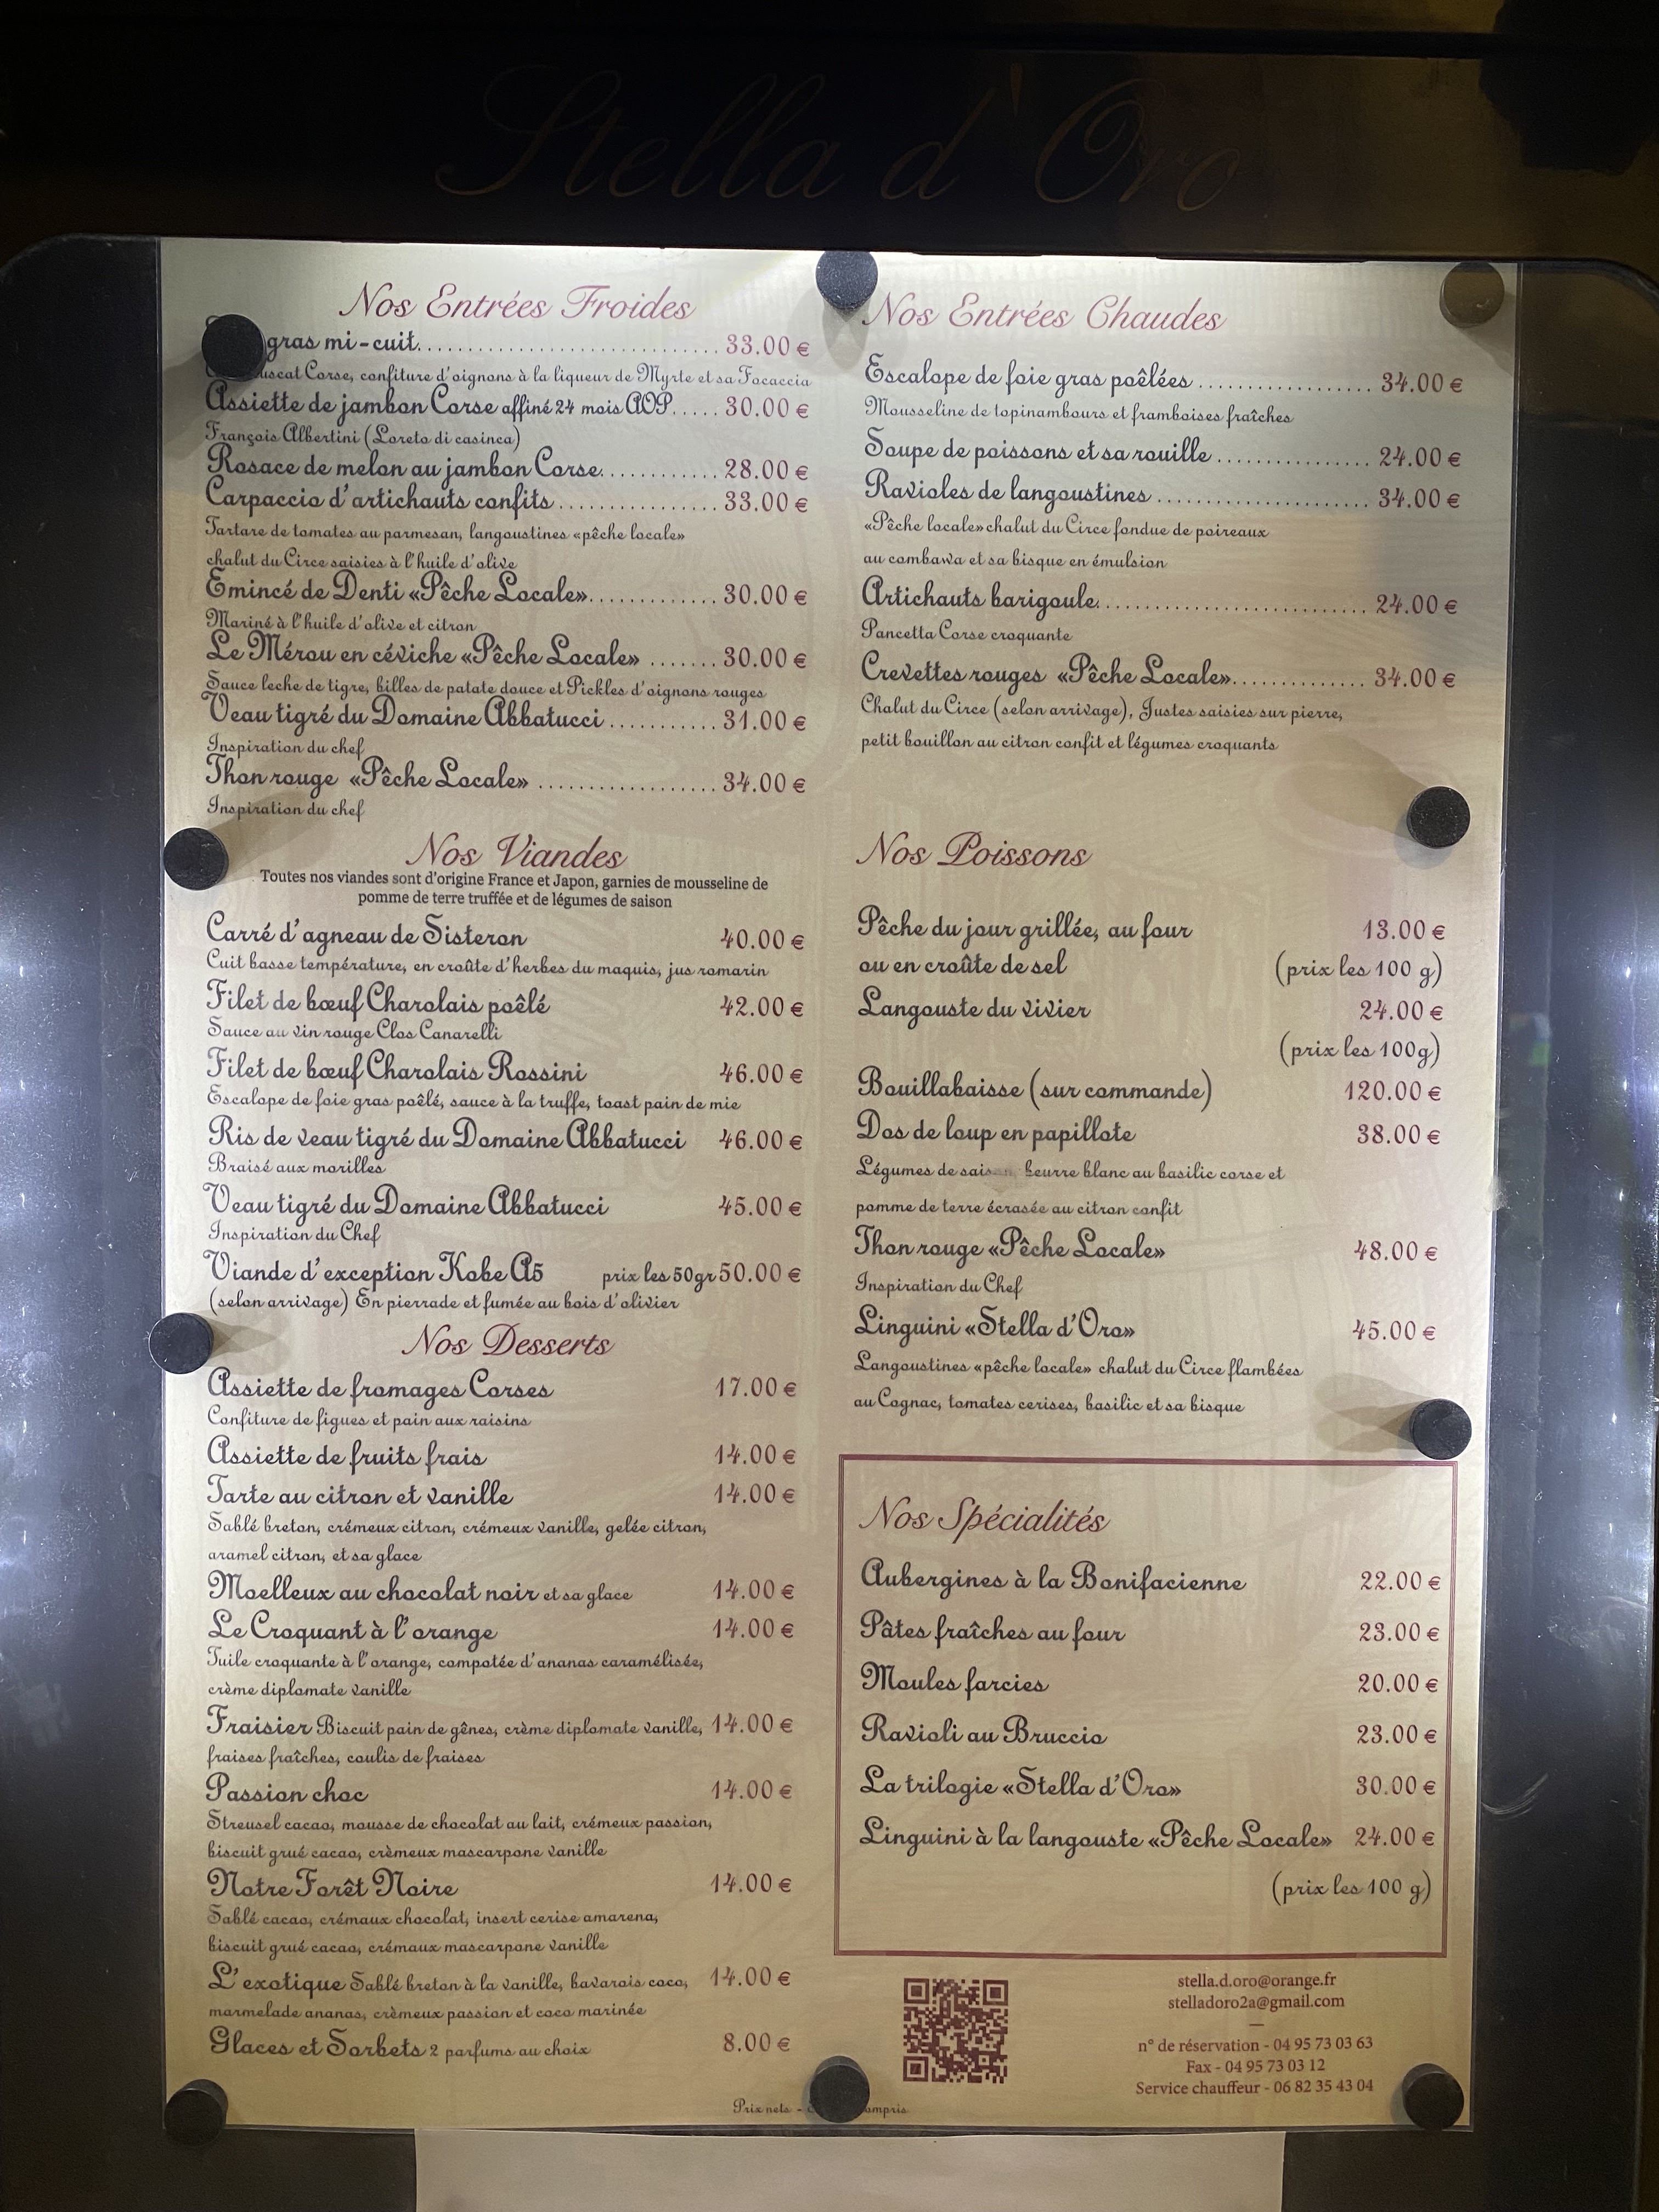 Stella d'Oro
Nos Entrées Froides
gras mi-cuit 33.00 €
Corse, confiture d'oignons à la liqueur de Myrte et sa Focaccia
Assiette de jambon Corse affiné 24 mois AOP 30.00 €
François Albertini (Loreto di casinca)
Rosace de melon au jambon Corse 28.00 €
Carpaccio d'artichauts confits 33.00 €
Tartare de tomates au parmesan, langoustines «pêche locale»
chalut du Circe saisies à l'huile d'olive
Emincé de Denti «Pêche Locale» 30.00 €
Mariné à l'huile d'olive et citron
Le Mérou en céviche «Pêche Locale» 30.00 €
Sauce leche de tigre, billes de patate douce et Pickles d'oignons rouges
Veau tigré du Domaine Abbatucci 31.00 €
Inspiration du chef
Thon rouge «Pêche Locale» 34.00 €
Inspiration du chef
Nos Viandes
Toutes nos viandes sont d'origine France et Japon, garnies de mousseline de
pomme de terre truffée et de légumes de saison
Carré d'agneau de Sisteron 40.00 €
Cuit basse température, en croûte d'herbes du maquis, jus romarin
Filet de bœuf Charolais poêlé 42.00 €
Sauce au vin rouge Clos Canarelli
Filet de bœuf Charolais Rossini 46.00 €
Escalope de foie gras poêlé, sauce à la truffe, toast pain de mie
Ris de veau tigré du Domaine Abbatucci 46.00 €
Braisé aux morilles
Veau tigré du Domaine Abbatucci 45.00 €
Inspiration du Chef
Viande d'exception Kobe A5 prix les 50gr 50.00 €
(selon arrivage) En pierrade et fumée au bois d'olivier
Nos Desserts
Assiette de fromages Corses 17.00 €
Confiture de figues et pain aux raisins
Assiette de fruits frais 14.00 €
Tarte au citron et vanille 14.00 €
Sablé breton, crémeux citron, crémeux vanille, gelée citron,
aramel citron, et sa glace
Moelleux au chocolat noir et sa glace 14.00 €
Le Croquant à l'orange 14.00 €
Tuile croquante à l'orange, compotée d'ananas caramélisée,
crème diplomate vanille
Fraisier Biscuit pain de gênes, crème diplomate vanille, 14.00 €
fraises fraîches, coulis de fraises
Passion choc 14.00 €
Streusel cacao, mousse de chocolat au lait, crémeux passion,
biscuit grué cacao, crèmeux mascarpone vanille
Notre Forêt Noire 14.00 €
Sablé cacao, crémaux chocolat, insert cerise amarena,
biscuit grué cacao, crémaux mascarpone vanille
L'exotique Sablé breton à la vanille, bavarois coco, 14.00 €
marmelade ananas, crèmeux passion et coco marinée
Glaces et Sorbets 2 parfums au choix 8.00 €
Nos Entrées Chaudes
Escalope de foie gras poêlées 34.00 €
Mousseline de topinambours et framboises fraîches
Soupe de poissons et sa rouille 24.00 €
Ravioles de langoustines 34.00 €
«Pêche locale» chalut du Circe fondue de poireaux
au combawa et sa bisque en émulsion
Artichauts barigoule 24.00 €
Pancetta Corse croquante
Crevettes rouges «Pêche Locale» 34.00 €
Chalut du Circe (selon arrivage), Justes saisies sur pierre,
petit bouillon au citron confit et légumes croquants
Nos Poissons
Pêche du jour grillée, au four 13.00 €
ou en croûte de sel (prix les 100 g)
Langouste du vivier 24.00 €
(prix les 100g)
Bouillabaisse (sur commande) 120.00 €
Dos de loup en papillote 38.00 €
Légumes de saison, beurre blanc au basilic corse et
pomme de terre écrasée au citron confit
Thon rouge «Pêche Locale» 48.00 €
Inspiration du Chef
Linguini «Stella d'Oro» 45.00 €
Langoustines «pêche locale» chalut du Circe flambées
au Cognac, tomates cerises, basilic et sa bisque
Nos Spécialités
Aubergines à la Bonifacienne 22.00 €
Pâtes fraîches au four 23.00 €
Moules farcies 20.00 €
Ravioli au Bruccio 23.00 €
La trilogie «Stella d'Oro» 30.00 €
Linguini à la langouste «Pêche Locale» 24.00 €
(prix les 100 g)
stella.d.oro@orange.fr
stelladoro2a@gmail.com
n° de réservation - 04 95 73 03 63
Fax - 04 95 73 03 12
Service chauffeur - 06 82 35 43 04
Prix nets -